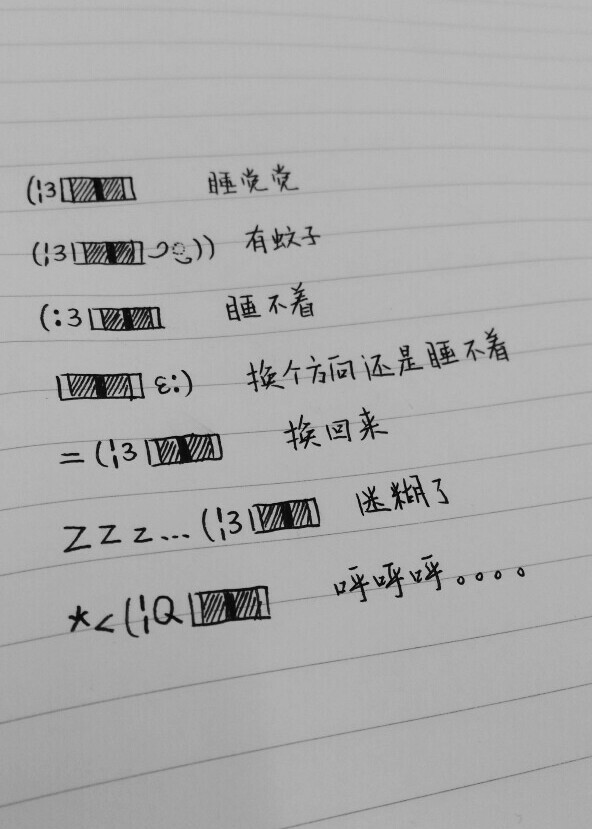 (¦3[▓▓] 睡党党
(¦3[▓▓]つ◌゛)) 有蚊子
(:3[▓▓] 睡不着
[▓▓]ε:) 换个方向还是睡不着
=(¦3[▓▓] 换回来
ZZz...(¦3[▓▓] 迷糊了
*<(¦Q[▓▓] 呼呼呼。。。。